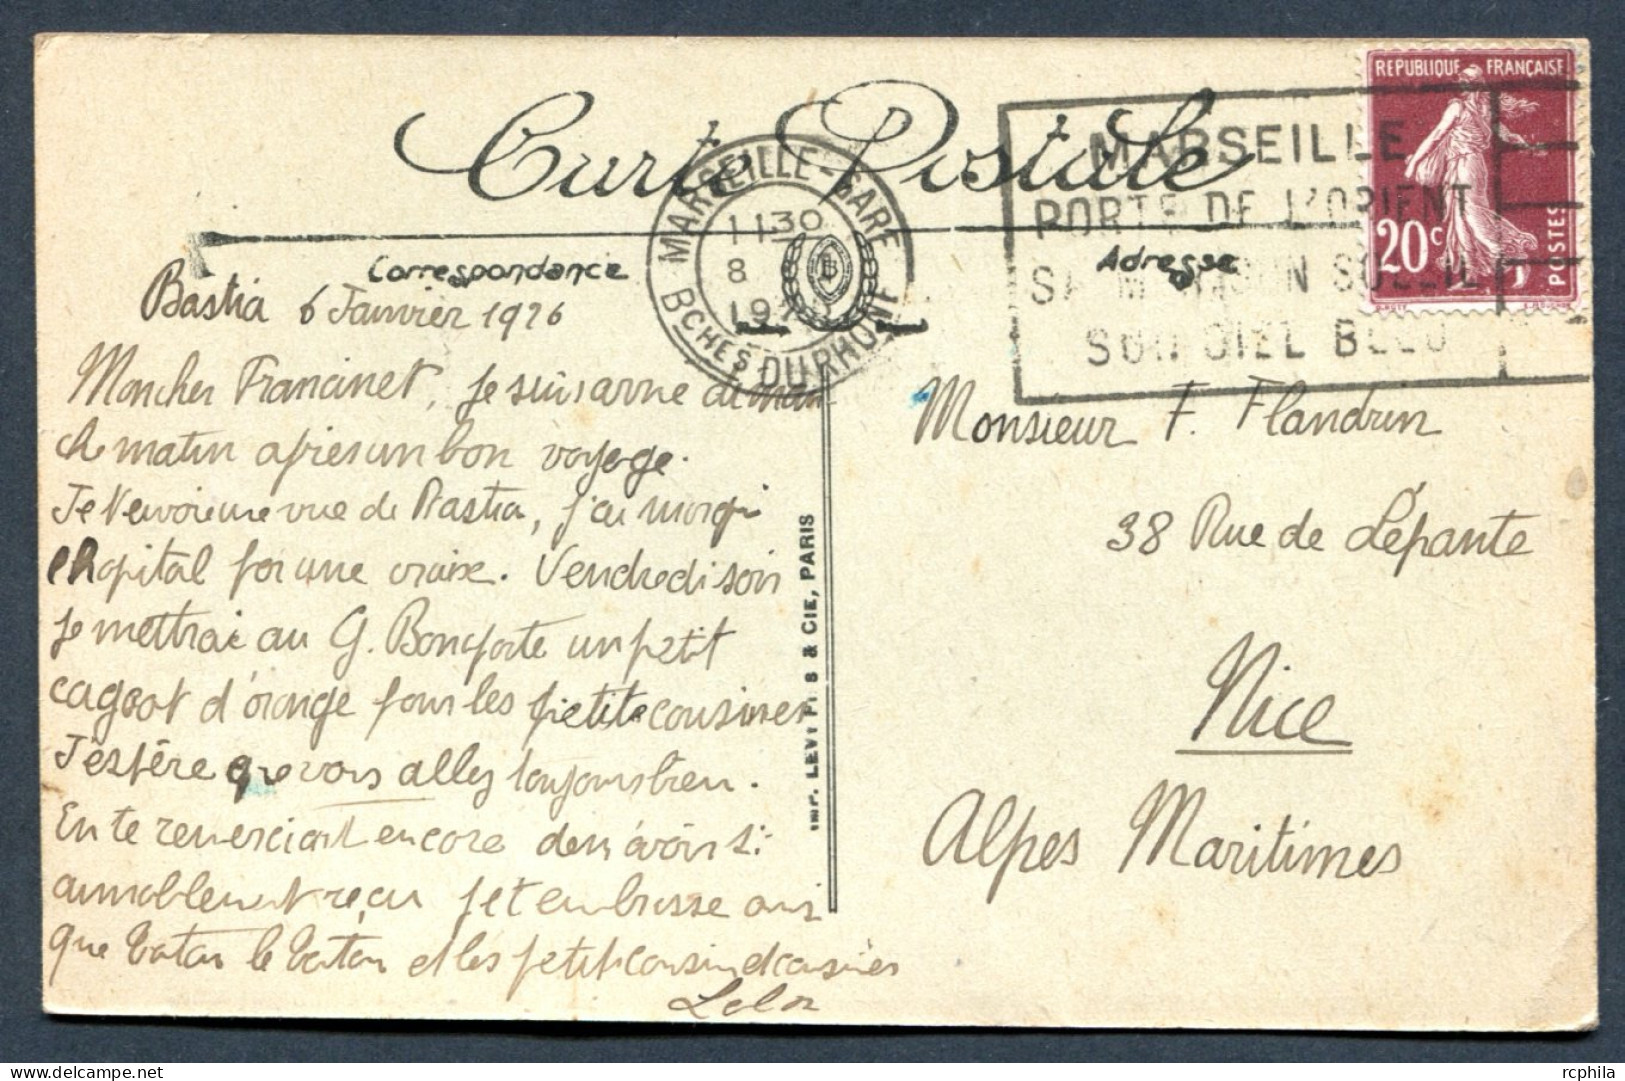 Carte Postale
REPUBLIQUE FRANÇAISE
20c
POSTES
MARSEILLE-GARE
1130
8
19
BCHES DU RHONE
MARSEILLE
PORTE DE L'ORIENT
SA MAISON SOLEIL
SON CIEL BLEU
Correspondance
Adresse
Bastia 6 Janvier 1926
Moncher Francinet, je suis arrivé diman
che matin apres un bon voyage.
Je t'envoie une vue de Bastia, j'ai
hopital pour une. Vendredi soir
je mettrai au G. Bonaparte un petit
cageot d'orange pour les petite cousines
J'espére que vous allez toujours bien.
En te remerciant encore de m'avoir si
aimablement reçu je t'embrasse ainsi
que tatan le tonton et les petit cousin et cousines
Monsieur F. Flandrin
38 Rue de Lépante
Nice
Alpes Maritimes
IMP. LEVY FILS & CIE, PARIS
rcphila